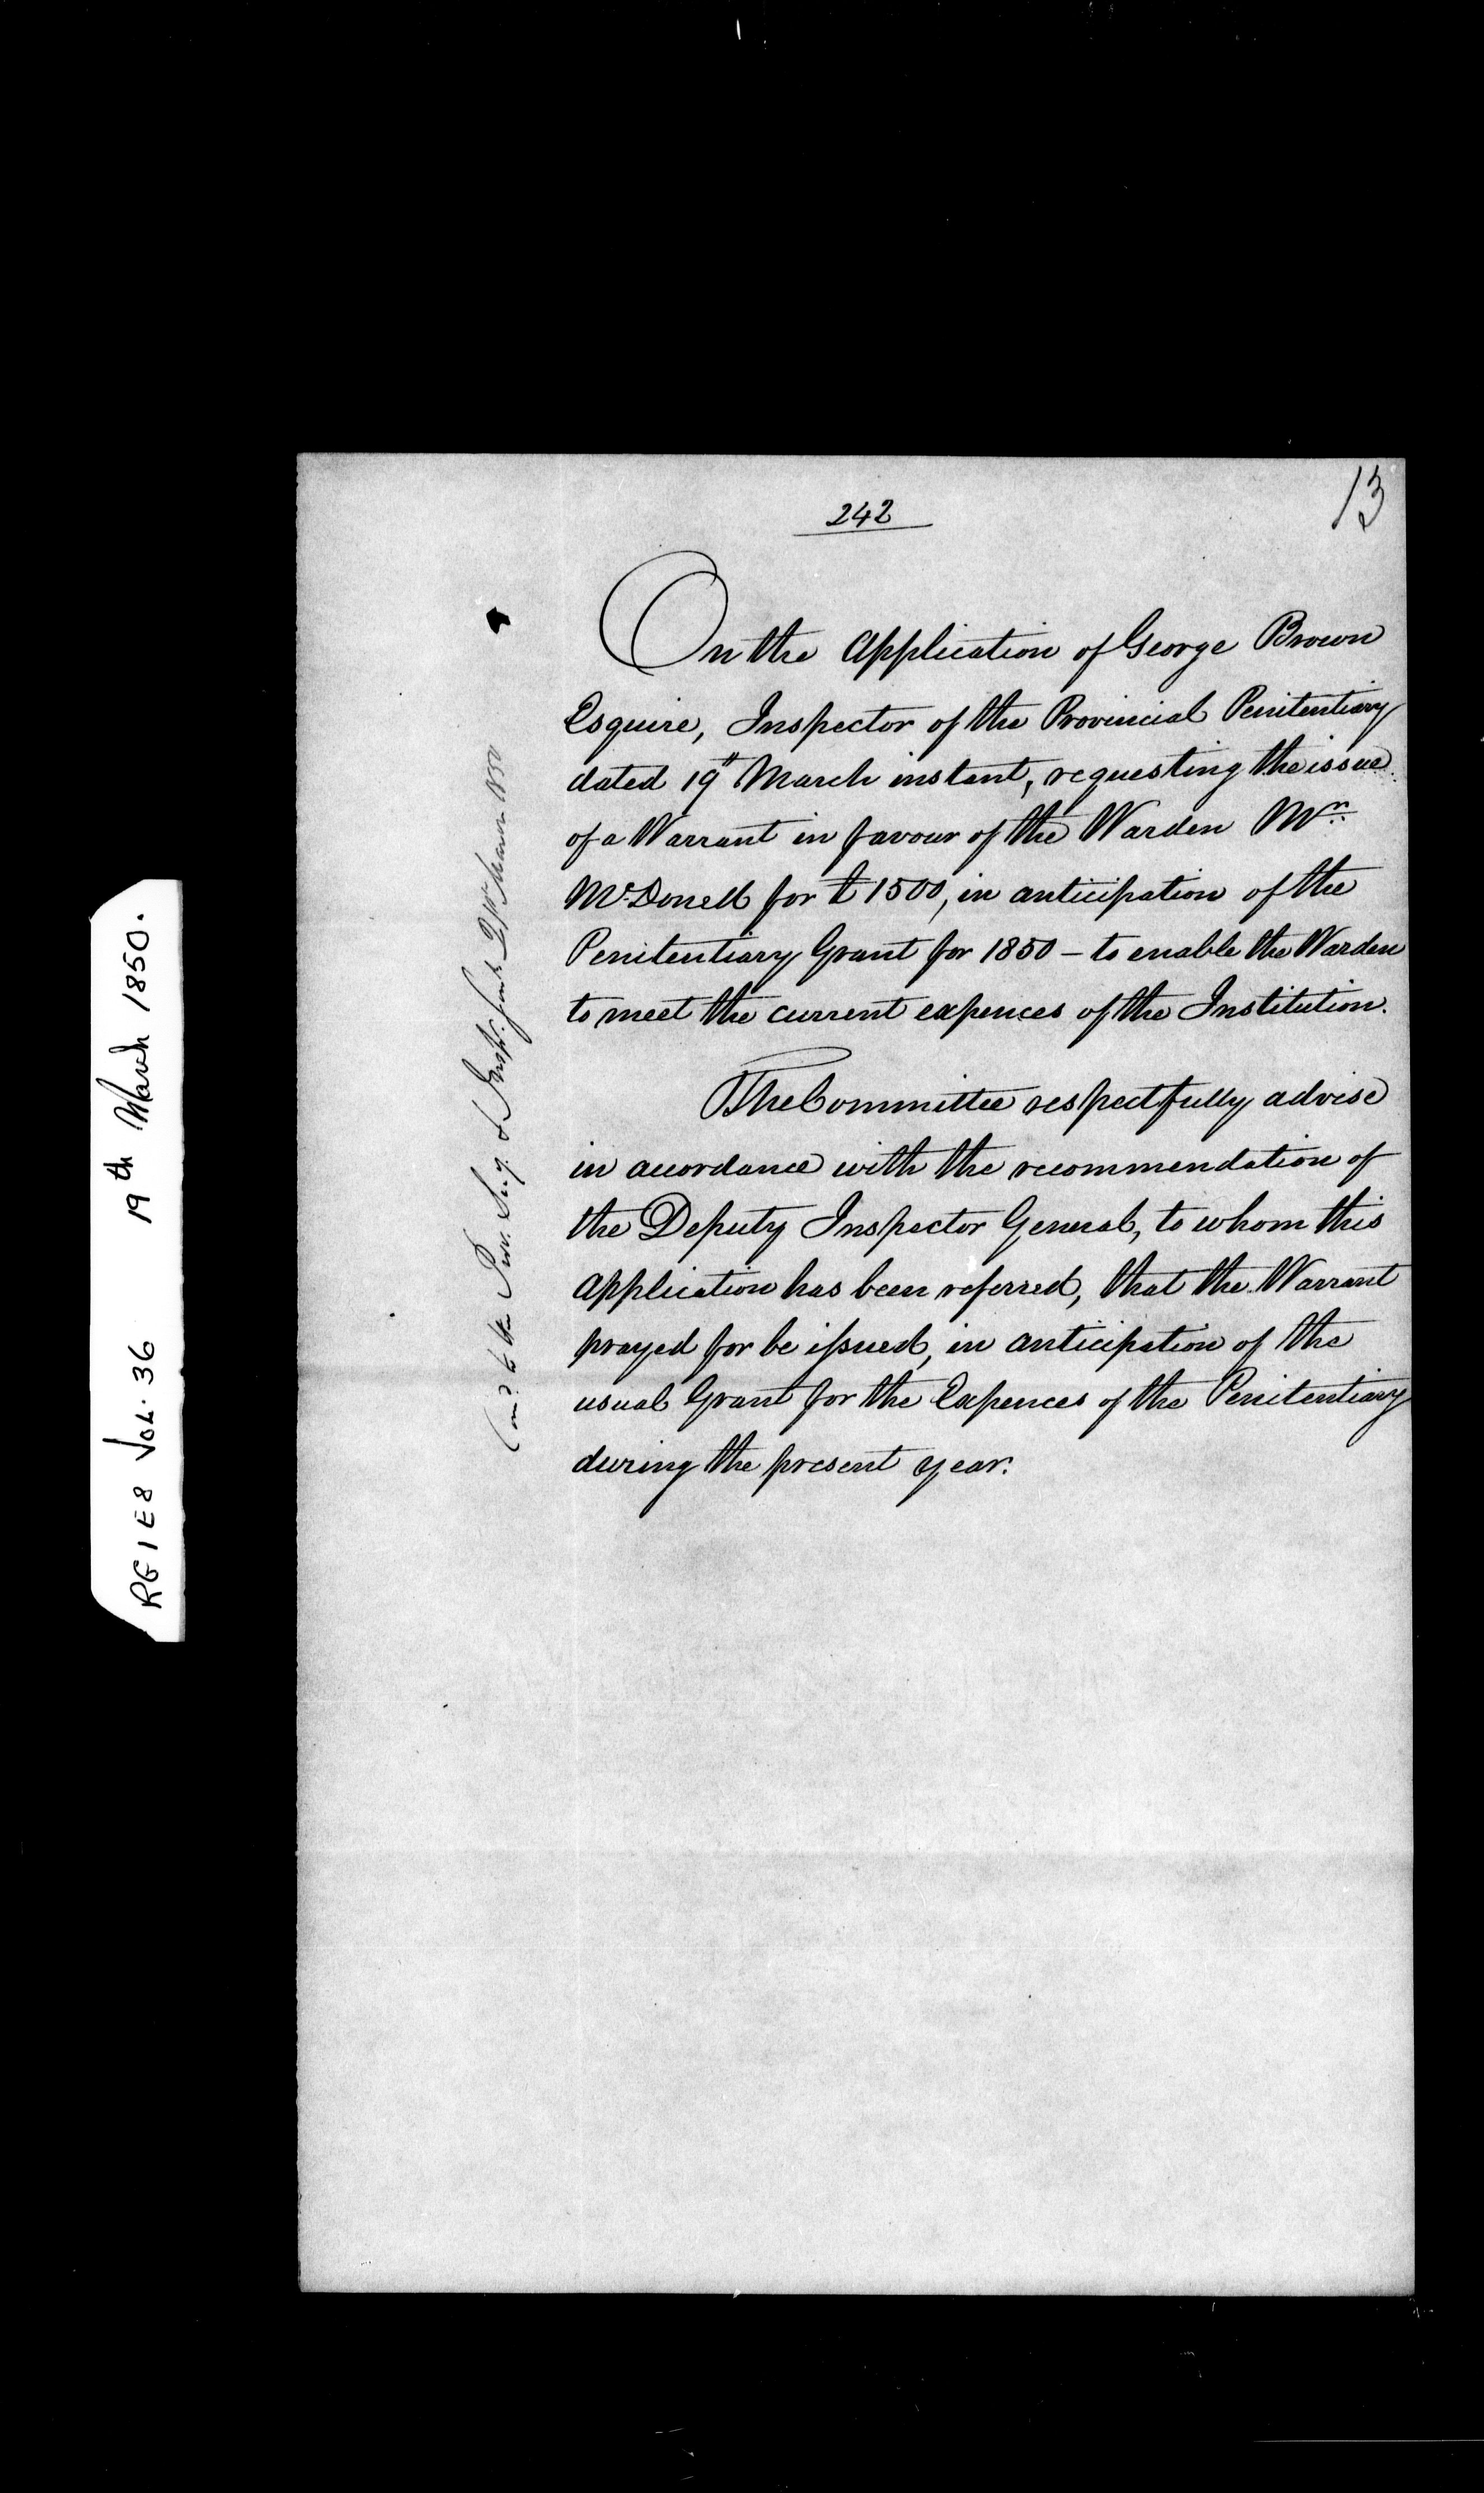 13
242
On the Application of George Brown
Esquire, Inspector of the Provincial Penitentiary
dated 19th March instant, requesting the issue
of a Warrant in favour of the Warden Mr.
McDonell for £1500, in anticipation of the
Penitentiary Grant for 1850 – to enable the Warden
to meet the current expences of the Institution.
The Committee respectfully advise
in accordance with the recommendation of
the Deputy Inspector General, to whom this
application has been referred, that the Warrant
prayed for be issued, in anticipation of the
usual Grant for the Expences of the Penitentiary
during the present year.
to the Prov. Secy. & Inspr. Genl. March 1850
RG 1 E8 Vol. 36 19th March 1850.